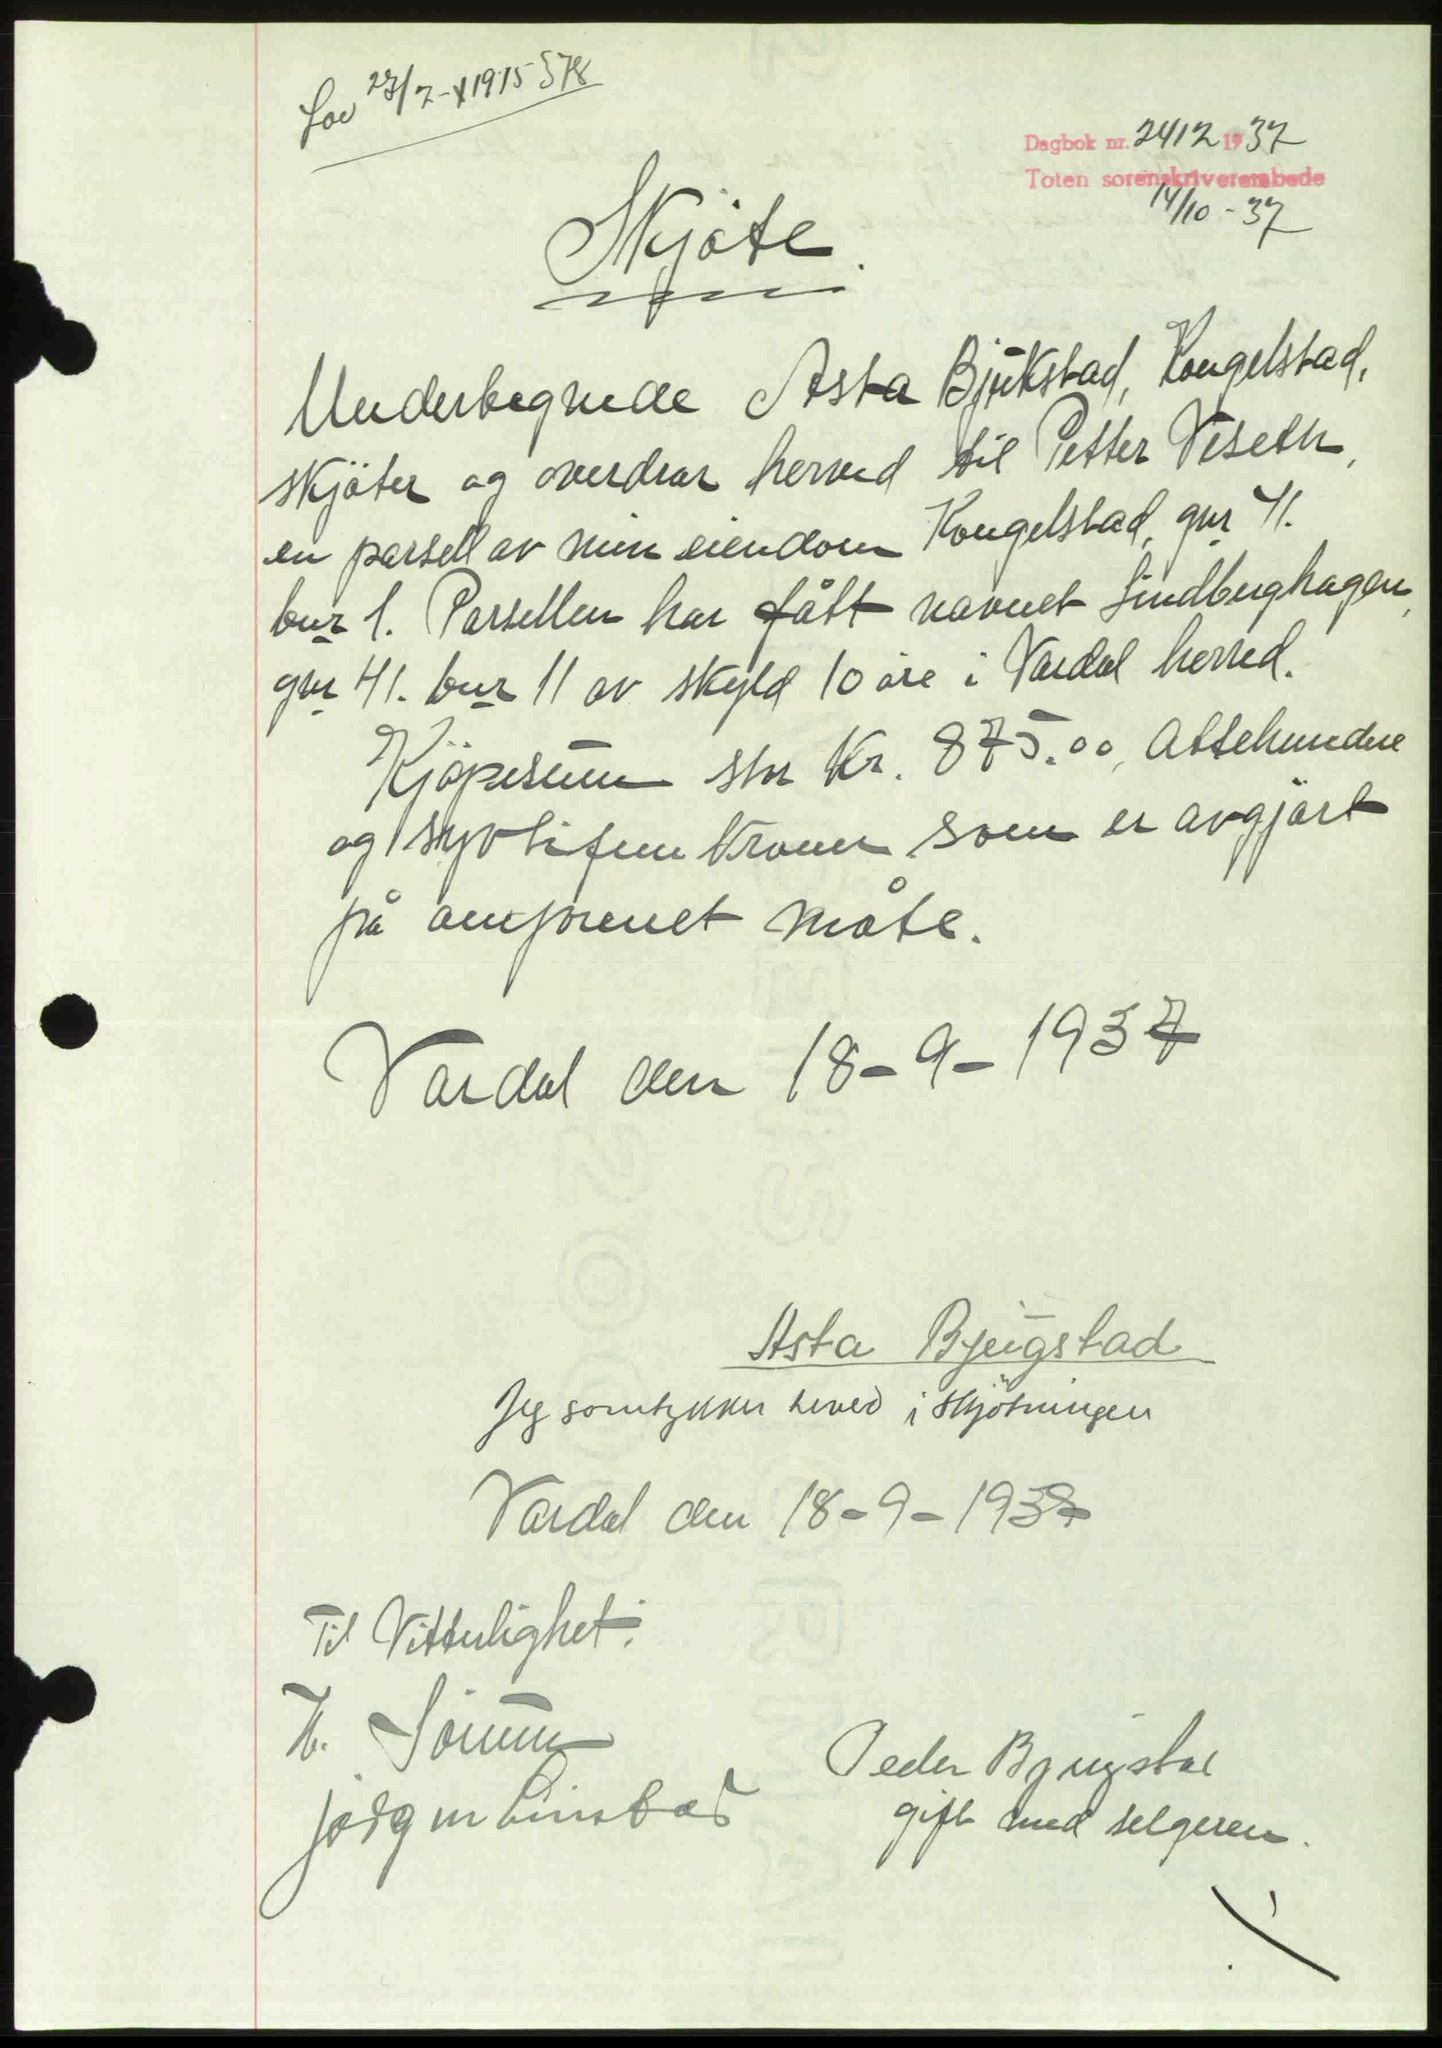 Lov 27/7-1915 § 78
Dagbok nr. 2412 1937
Toten sorenskriverembede
14/10-37
Skjöte.
Undertegnede Asta Bjükstad, Kongelstad,
skjöter og overdrar herved til Petter Viseth,
en parsell av min eiendom Kongelstad, gnr 41.
bnr 1. Parsellen har fått navnet Lindberghagen,
gnr 41. bnr 11 av skyld 10 öre i Vardal herred.
Kjöpesum stor Kr. 875.00, Attehundre
og syvtifem kroner som er avgjört
på omforenet måte.
Vardal den 18-9-1937
Asta Bjugstad
Jeg samtykker herved i skjötningen
Vardal den 18-9-1937
Til Vitterlighet:
H. Sörum
Jörgen Linstad
Peder Bjugstad
gift med selgeren.